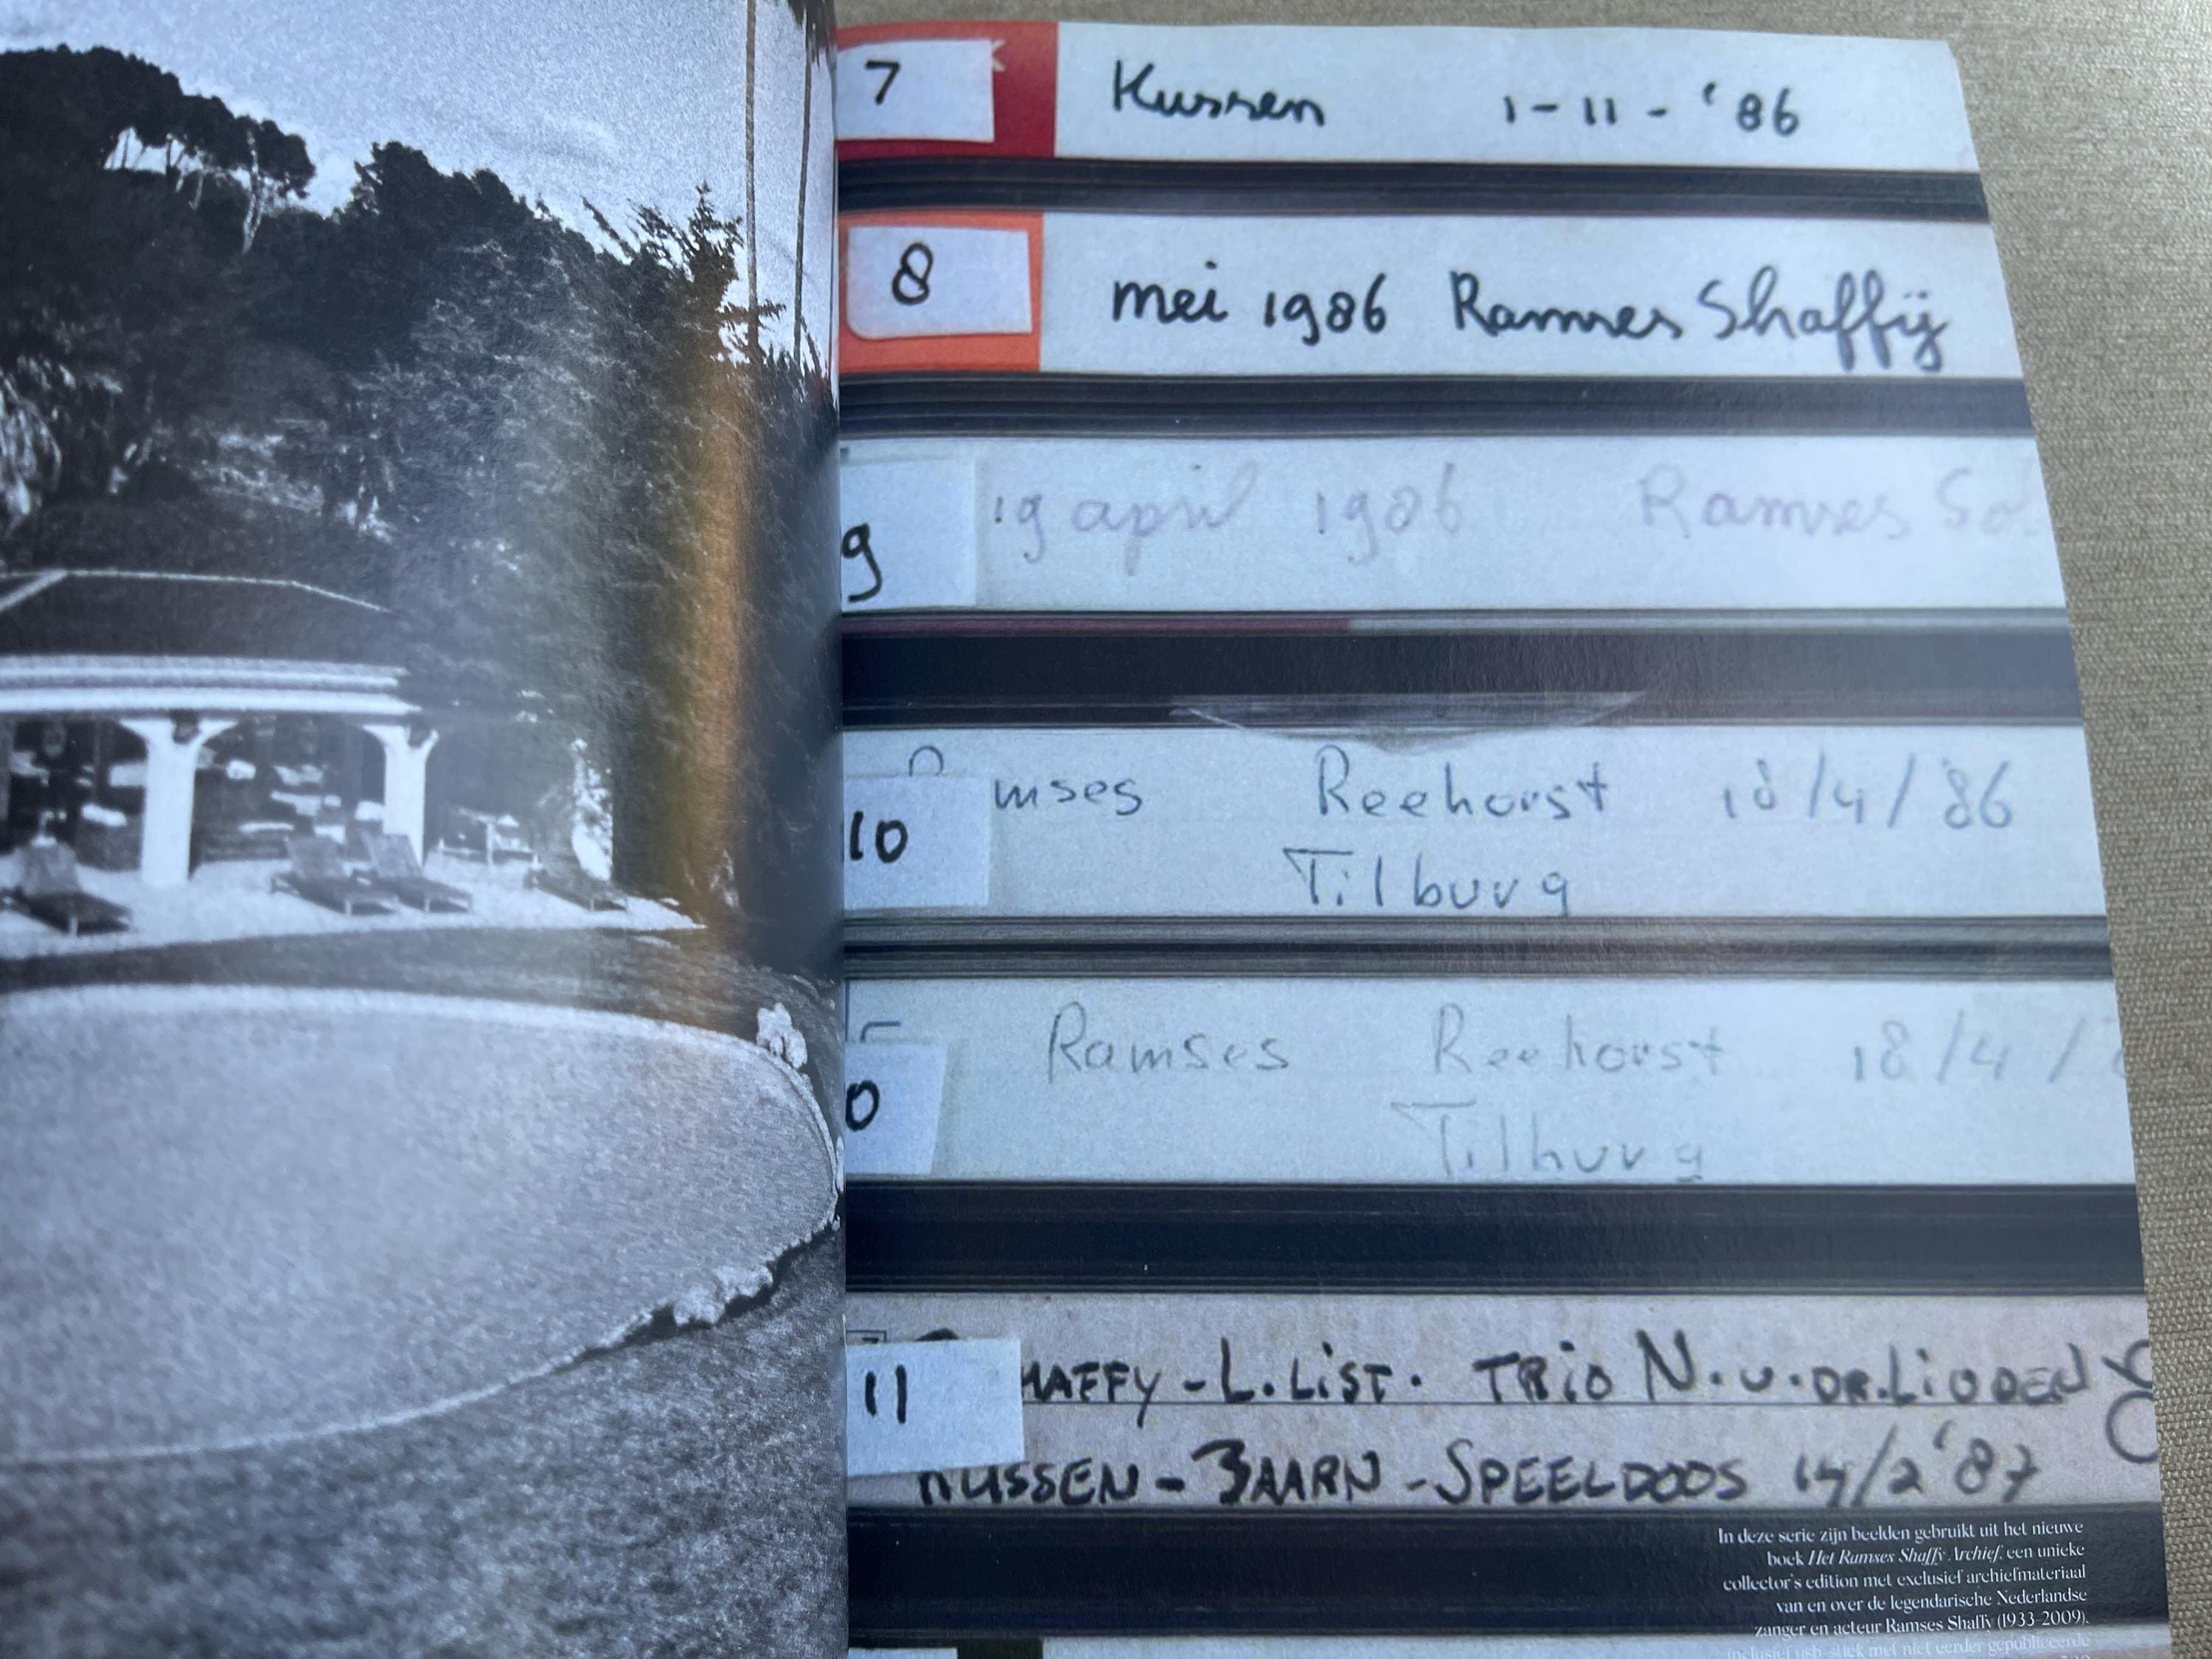 7 Kussen 1-11-'86
8 mei 1986 Ramses Shaffÿ
9 19 april 1986 Ramses
mses Reehorst 18/4/'86
10 Tilburg
Ramses Reehorst 18/4/
0 Tilburg
11 HAFFY - L. LiST. TRiO N.v.DR.LiNDEN
KUSSEN - BAARN - SPEELDOOS 14/2 '87
In deze serie zijn beelden gebruikt uit het nieuwe
boek Het Ramses Shaffy Archief, een unieke
collector's edition met exclusief archiefmateriaal
van en over de legendarische Nederlandse
zanger en acteur Ramses Shaffy (1933-2009),
inclusief usb-stick met niet eerder gepubliceerde